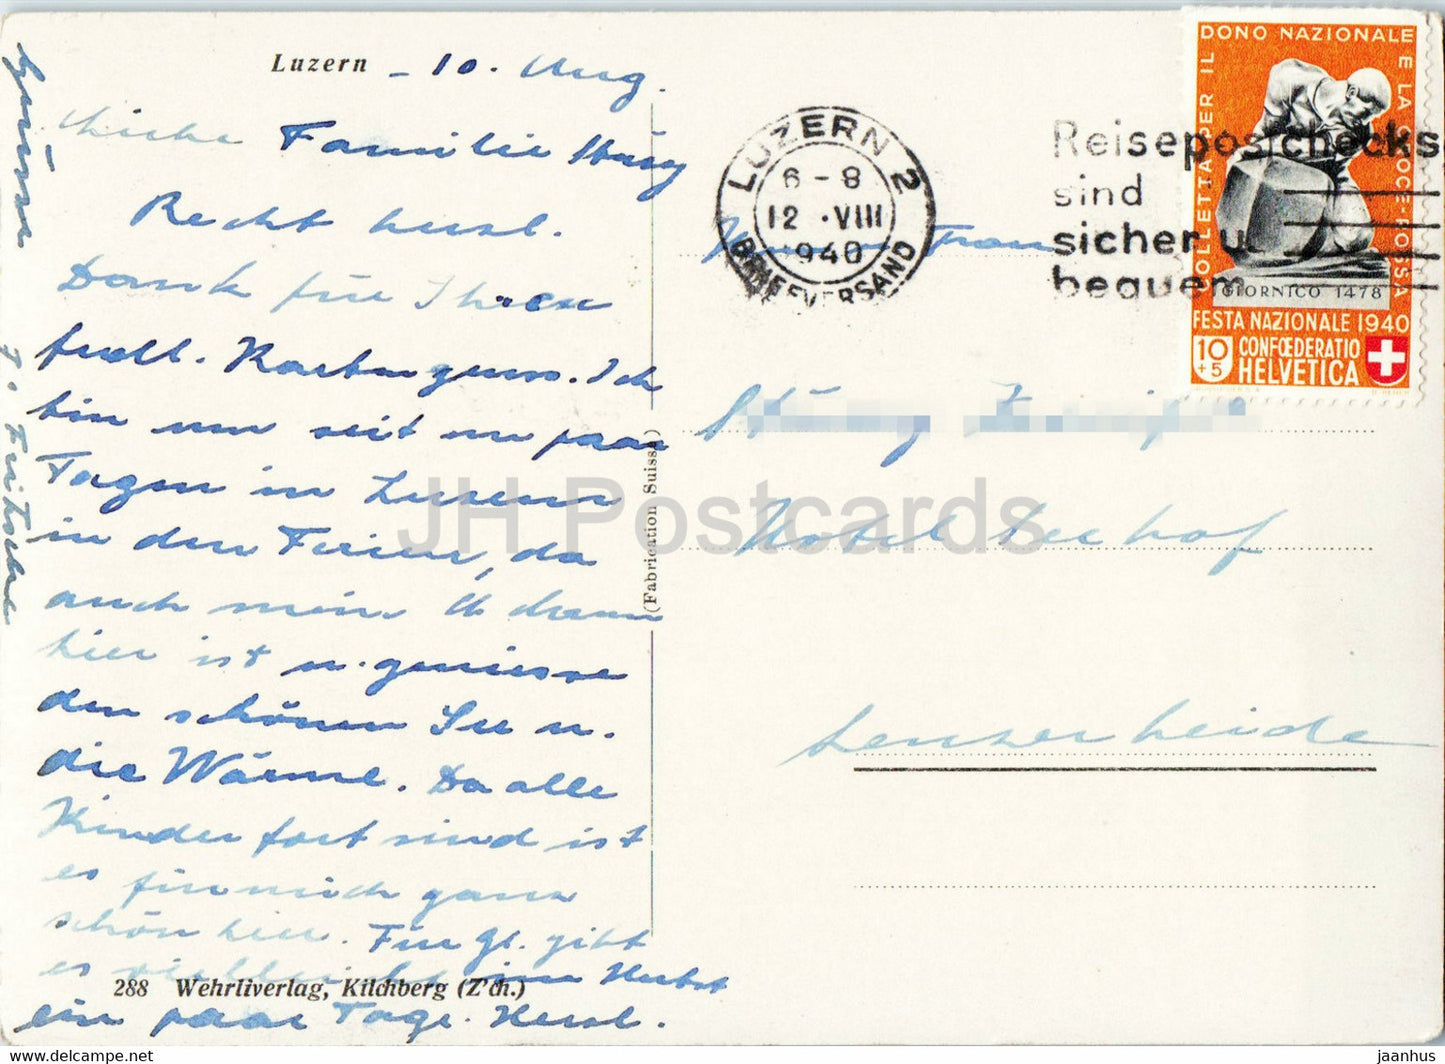 Luzern - 10. Aug.
Liebe Familie Hürg
Recht herzl.
Dank für Ihren
frdl. Kartengruss. Ich
bin nun seit en paar
Tagen in Luzern
in den Ferien, da
auch mein
hier ist u. geniesse
den schönen See u.
die Wärme. Da alle
Kinder fort sind ist
es für mich ganz
schön hier. Für gibt
es vielleicht im Herbst
ein paar Tage. Herzl.
Grüsse
288 Wehrliverlag, Kilchberg (Z'ch.)
(Fabrication Suisse)
LUZERN 2
6-8
12.VIII
1940
BRIEFVERSAND
Reisepostchecks
sind
sicher u.
bequem
COLLETTA PER IL DONO NAZIONALE E LA CROCE-ROSSA
GIORNICO 1478
FESTA NAZIONALE 1940
10
+5
CONFŒDERATIO
HELVETICA
Frau
Hotel Seehof
Lenzerheide
JH Postcards
jaanhus.com